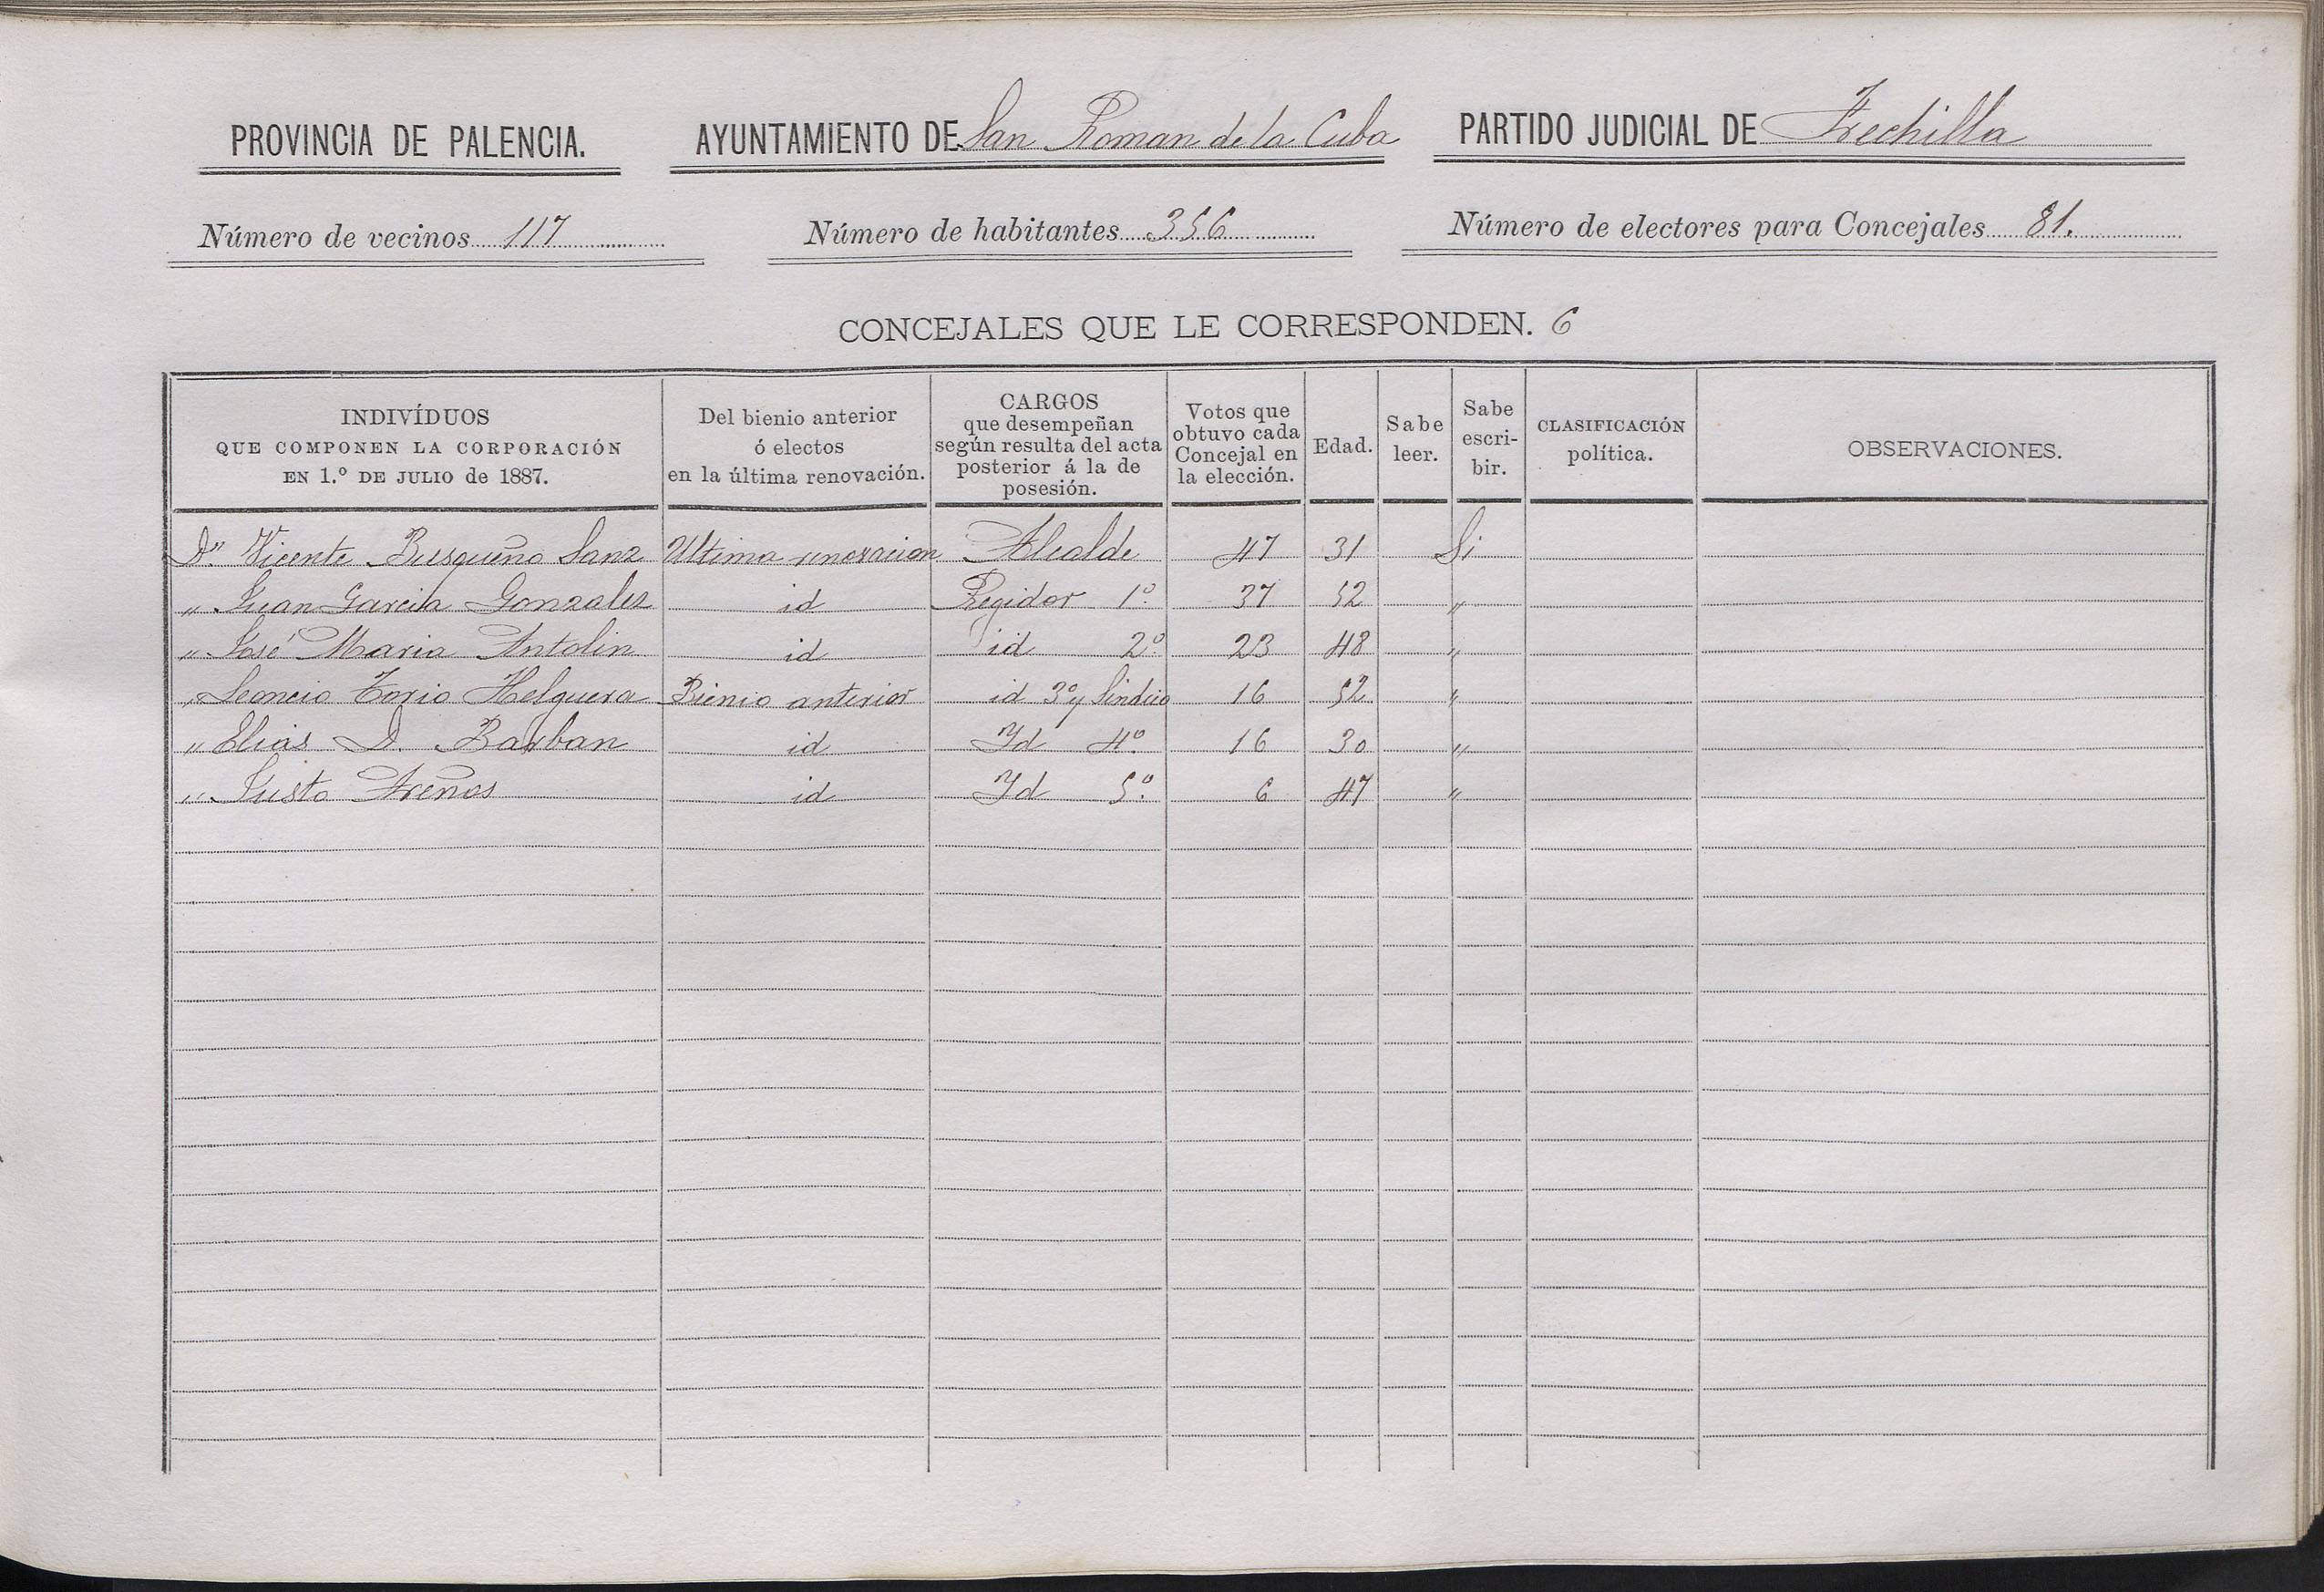 PROVINCIA DE PALENCIA. AYUNTAMIENTO DE San Roman de la Cuba PARTIDO JUDICIAL DE Frechilla
Número de vecinos 117 Número de habitantes 356 Número de electores para Concejales 81.
CONCEJALES QUE LE CORRESPONDEN. 6
INDIVÍDUOS
QUE COMPONEN LA CORPORACIÓN
EN 1.º DE JULIO de 1887.
Del bienio anterior
ó electos
en la última renovación.
CARGOS
que desempeñan
según resulta del acta
posterior á la de
posesión.
Votos que
obtuvo cada
Concejal en
la elección.
Edad.
Sabe
leer.
Sabe
escri-
bir.
CLASIFICACIÓN
política.
OBSERVACIONES.
Dn Vicente Busqueño Sanz Ultima renovacion Alcalde 47 31 Si
" Juan Garcia Gonzalez id Regidor 1º 37 52 "
" José Maria Antolin id id 2º 23 48 "
" Leoncio Torio Helguera Bienio anterior id 3º y Sindico 16 52 "
" Elias D. Barban id Id 4º 16 30 "
" Justo Areños id Id 5º 6 47 "